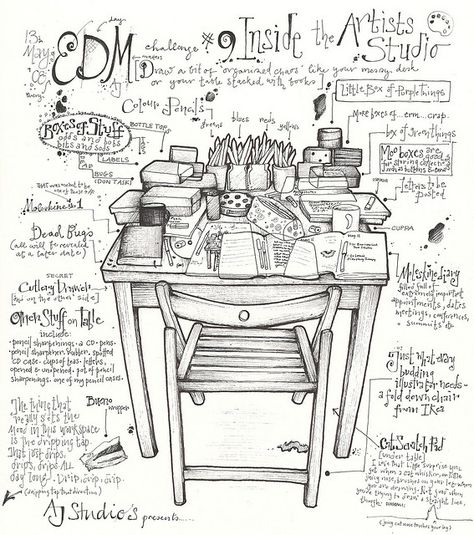 13th
May
08
EDM
day
challenge
#9 Inside the Artists
Studio
Draw a bit of organized chaos like your messy desk
or your table stacked with books.
Colour Pencils
greens
blues
reds
yellows
Little Box of Purple things
More boxes of...erm...crap.
box of Irony things
Moo boxes are
good
for storing
Letters to be
posted
CUPPA
Boxes of Stuff
odds and sods
bits and bobs
BOTTLE TOPS
LABELS
BUGS
(DON'T ASK)
Moleskine #1
Dead Bugs
(all will be revealed
at a later date)
SECRET
Cutlery Drawer
(on the other side)
Other Stuff on Table
include:
pencil sharpenings, a CD, pens,
pencil sharpener, rubber, spotted
CD case, cups of tea, letters,
opened & unopened, pot of pencil
sharpenings, one of my pencil cases.
The thing that
really sets the
mood in this workspace
is the dripping tap.
That drip drips,
drips, drips ALL
day long. Drip, drip, drip.
(dripping tap that direction)
Bueno
wrapper
Moleskine diary
filled full of
extremely important
appointments, dates
meetings, conferences,
summits etc
Just what every
budding
illustrator needs -
a fold down chair
from Ikea
Cat Scratch Pad
(under table)
I love that little surprise you
get when a cat
brushes up your leg when
you are drawing. Not good when
you're trying to draw a straight line,
though.
AJ Studio's presents.....